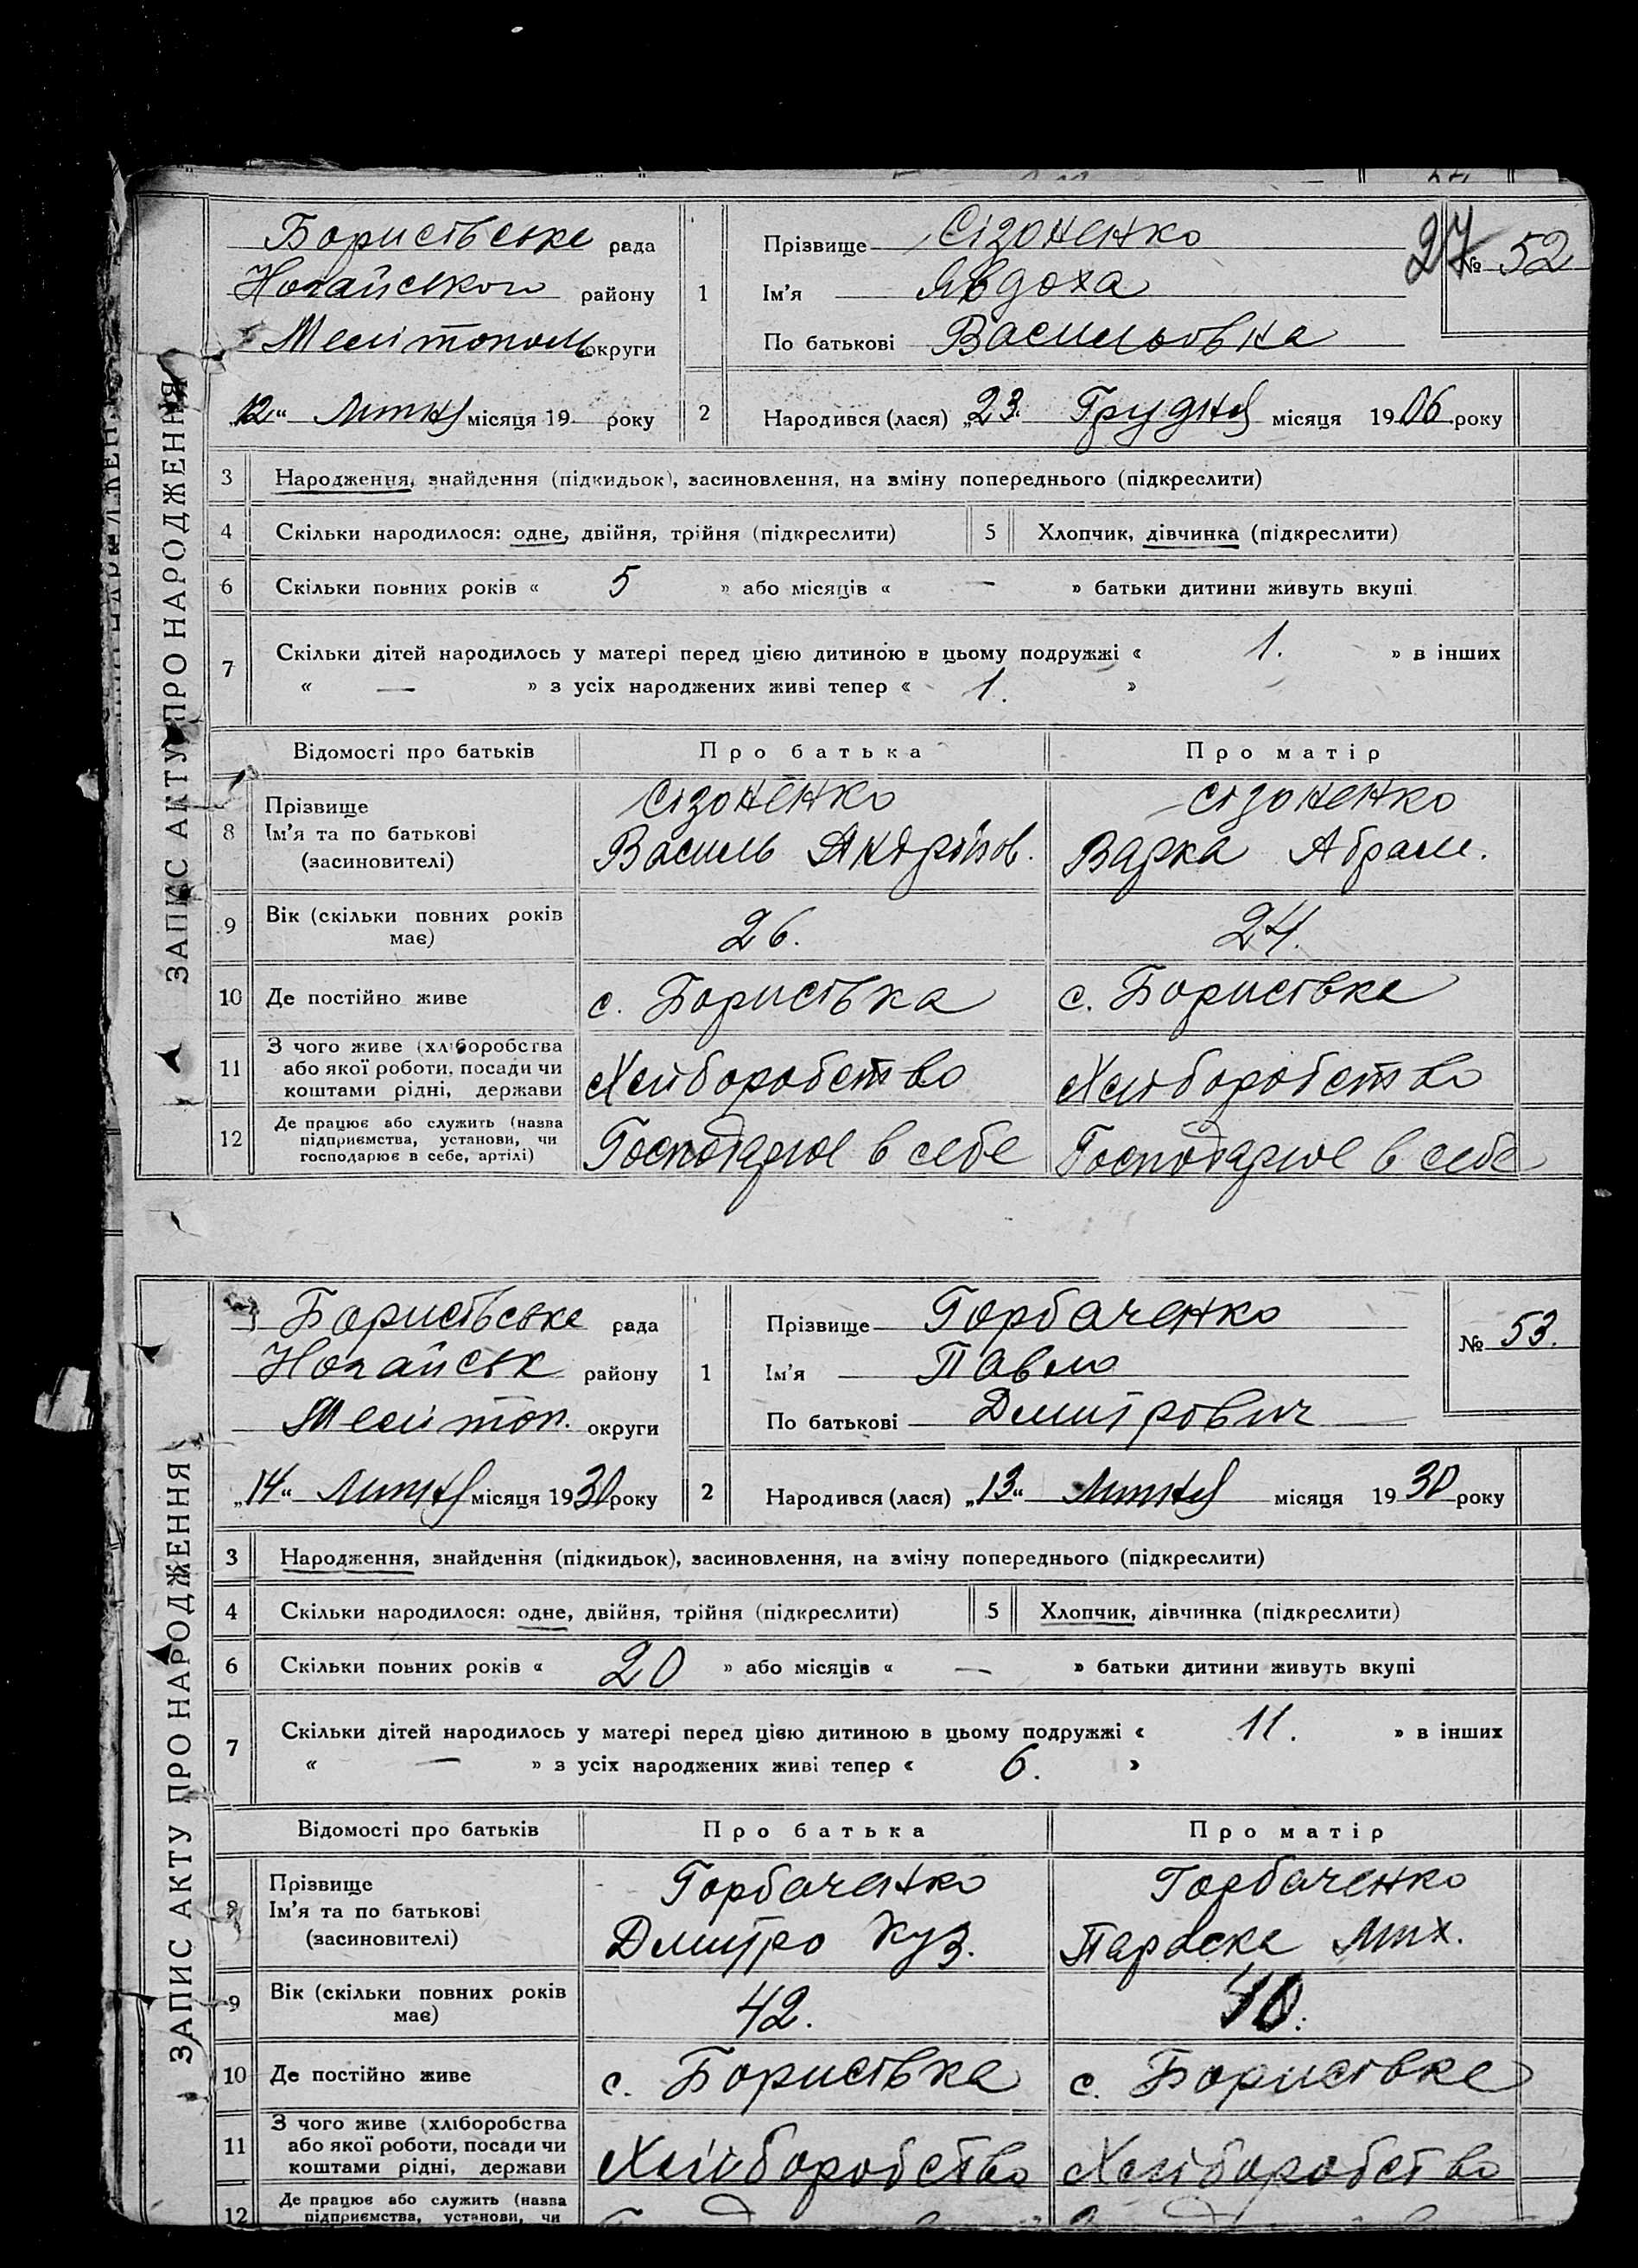 ЗАПИС АКТУ ПРО НАРОДЖЕННЯ
Борисівське рада
Ногайського району
Мелітополь округи
„12“ Липня місяця 19 року
27
№ 52
1
Прізвище Сізоненко
Ім’я Явдоха
По батькові Васильовна
2 Народився (лася) „23“ Грудня місяця 1906 року
3 Народження, знайдення (підкидьок), засиновлення, на зміну попереднього (підкреслити)
4 Скільки народилося: одне, двійня, трійня (підкреслити) 5 Хлопчик, дівчинка (підкреслити)
6 Скільки повних років « 5 » або місяців « — » батьки дитини живуть вкупі
7 Скільки дітей народилось у матері перед цією дитиною в цьому подружжі « 1. » в інших
« — » з усіх народжених живі тепер « 1. »
Відомості про батьків Про батька Про матір
8 Прізвище Сізоненко Сізоненко
Ім’я та по батькові Василь Андрійов. Варка Абрам.
(засиновителі)
9 Вік (скільки повних років має) 26. 24.
10 Де постійно живе с. Борисівка с. Борисівка
11 З чого живе (хліборобства
або якої роботи, посади чи
коштами рідні, держави Хліборобство Хліборобство
12 Де працює або служить (назва
підприємства, установи, чи
господарює в себе, артілі) Господарює в себе Господарює в себе
ЗАПИС АКТУ ПРО НАРОДЖЕННЯ
Борисівське рада
Ногайськ району
Мелітоп. округи
„14“ Липня місяця 1930 року
№ 53.
1
Прізвище Горбаченко
Ім’я Павло
По батькові Дмитрович
2 Народився (лася) „13“ Липня місяця 1930 року
3 Народження, знайдення (підкидьок), засиновлення, на зміну попереднього (підкреслити)
4 Скільки народилося: одне, двійня, трійня (підкреслити) 5 Хлопчик, дівчинка (підкреслити)
6 Скільки повних років « 20 » або місяців « — » батьки дитини живуть вкупі
7 Скільки дітей народилось у матері перед цією дитиною в цьому подружжі « 11. » в інших
« — » з усіх народжених живі тепер « 6. »
Відомості про батьків Про батька Про матір
8 Прізвище Горбаченко Горбаченко
Ім’я та по батькові Дмитро Куз. Параска Мих.
(засиновителі)
9 Вік (скільки повних років має) 42. 40.
10 Де постійно живе с. Борисівка с. Борисівка
11 З чого живе (хліборобства
або якої роботи, посади чи
коштами рідні, держави Хліборобство Хліборобство
12 Де працює або служить (назва
підприємства, установи, чи